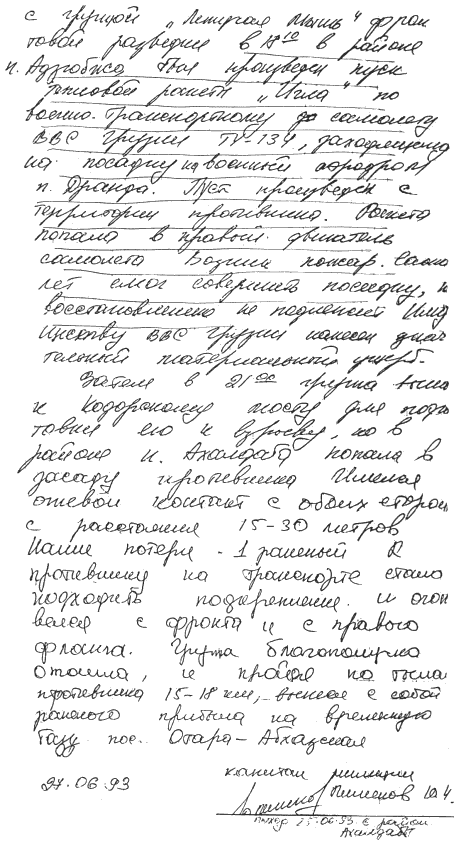 с группой „Летучая Мышь" фрон
товой разведки в 18¹⁰ в районе
п. Адзюбжа был произведен пуск
тепловой ракеты „Игла" по
военно-транспортному самолету
ВВС Грузии ТУ-134, заходящему
на посадку на военный аэродром
п. Дранда. Пуск произведен с
территории противника. Ракета
попала в правый двигатель
самолета Возник пожар. Само
лет смог совершить посадку, но
восстановлению не подлежит
ВВС Грузии нанесен
материальный ущерб.
Затем в 21⁰⁰ группа вышла
к Кодорскому мосту для подго
товки его к взрыву, но в
районе н. Ахалдаба попала в
засаду противника Имела
огневой контакт с обеих сторон
с расстояния 15-30 метров
Наши потери - 1 раненый К
противнику на транспорте стало
подходить подкрепление и огонь
велся с фронта и с правого
фланга. Группа благополучно
отошла, и пройдя по тылам
противника 15-18 км, вынося с собой
раненого прибыла на временную
базу пос. Отара-Абхазская
27.06.93
капитан милиции
выход 25.06.93 в район
Ахалдаба